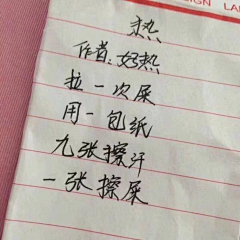 SIGN LAN
热
作者:好热
拉一次屎
用一包纸
九张擦汗
一张擦屎